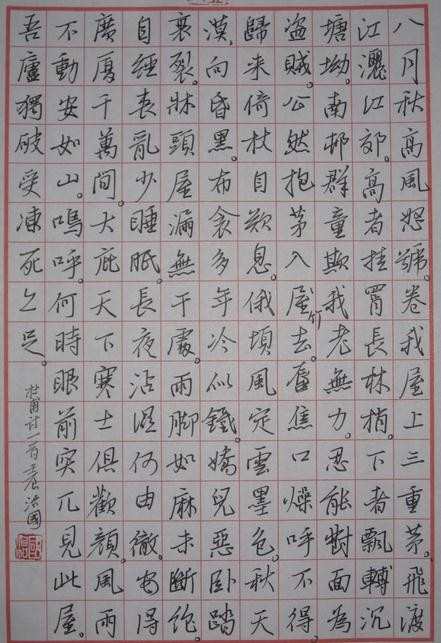 八月秋高風怒號。卷我屋上三重茅。飛渡
江灑江郊。高者挂罥長林梢。下者飄轉沉
塘坳。南邨群童欺我老無力。忍能對面為
盜賊。公然抱茅入屋竹去。唇焦口燥呼不得
歸来倚杖自歎息。俄頃風定雲墨色。秋天
漠、向昏黑。布衾多年冷似鐵。嬌兒惡卧踏
裏裂。牀頭屋漏無干處。雨脚如麻未斷絶
自經喪亂少睡眠。長夜沾濕何由徹。安得
廣厦千萬間。大庇天下寒士俱歡顏。風雨
不動安如山。嗚呼。何時眼前突兀見此屋。
吾廬獨破受凍死亦足。
杜甫詩一首 洪國